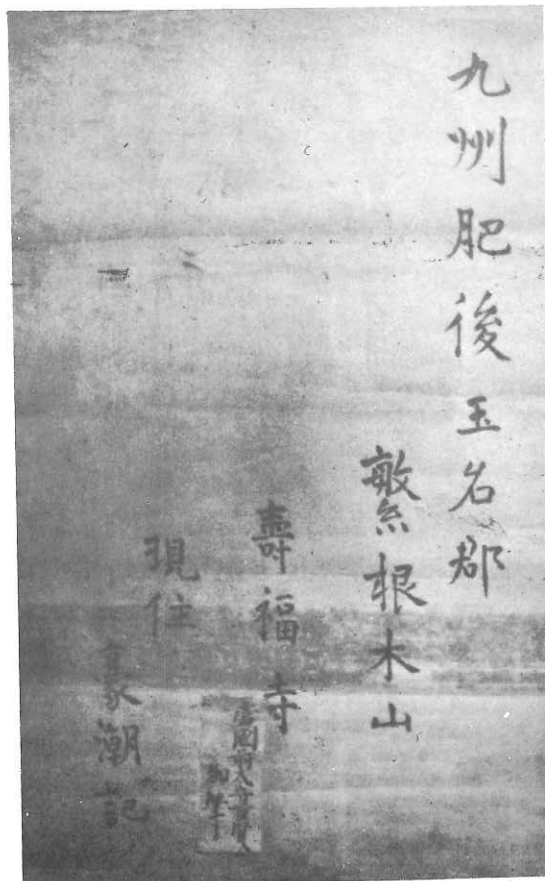 九州肥後玉名郡
繁根木山
壽福寺
現住
豪潮記